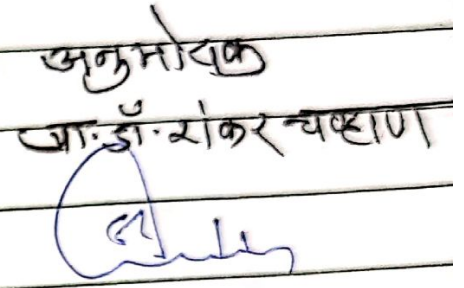 अनुमोदक
प्रा.डॉ. शंकर चव्हाण